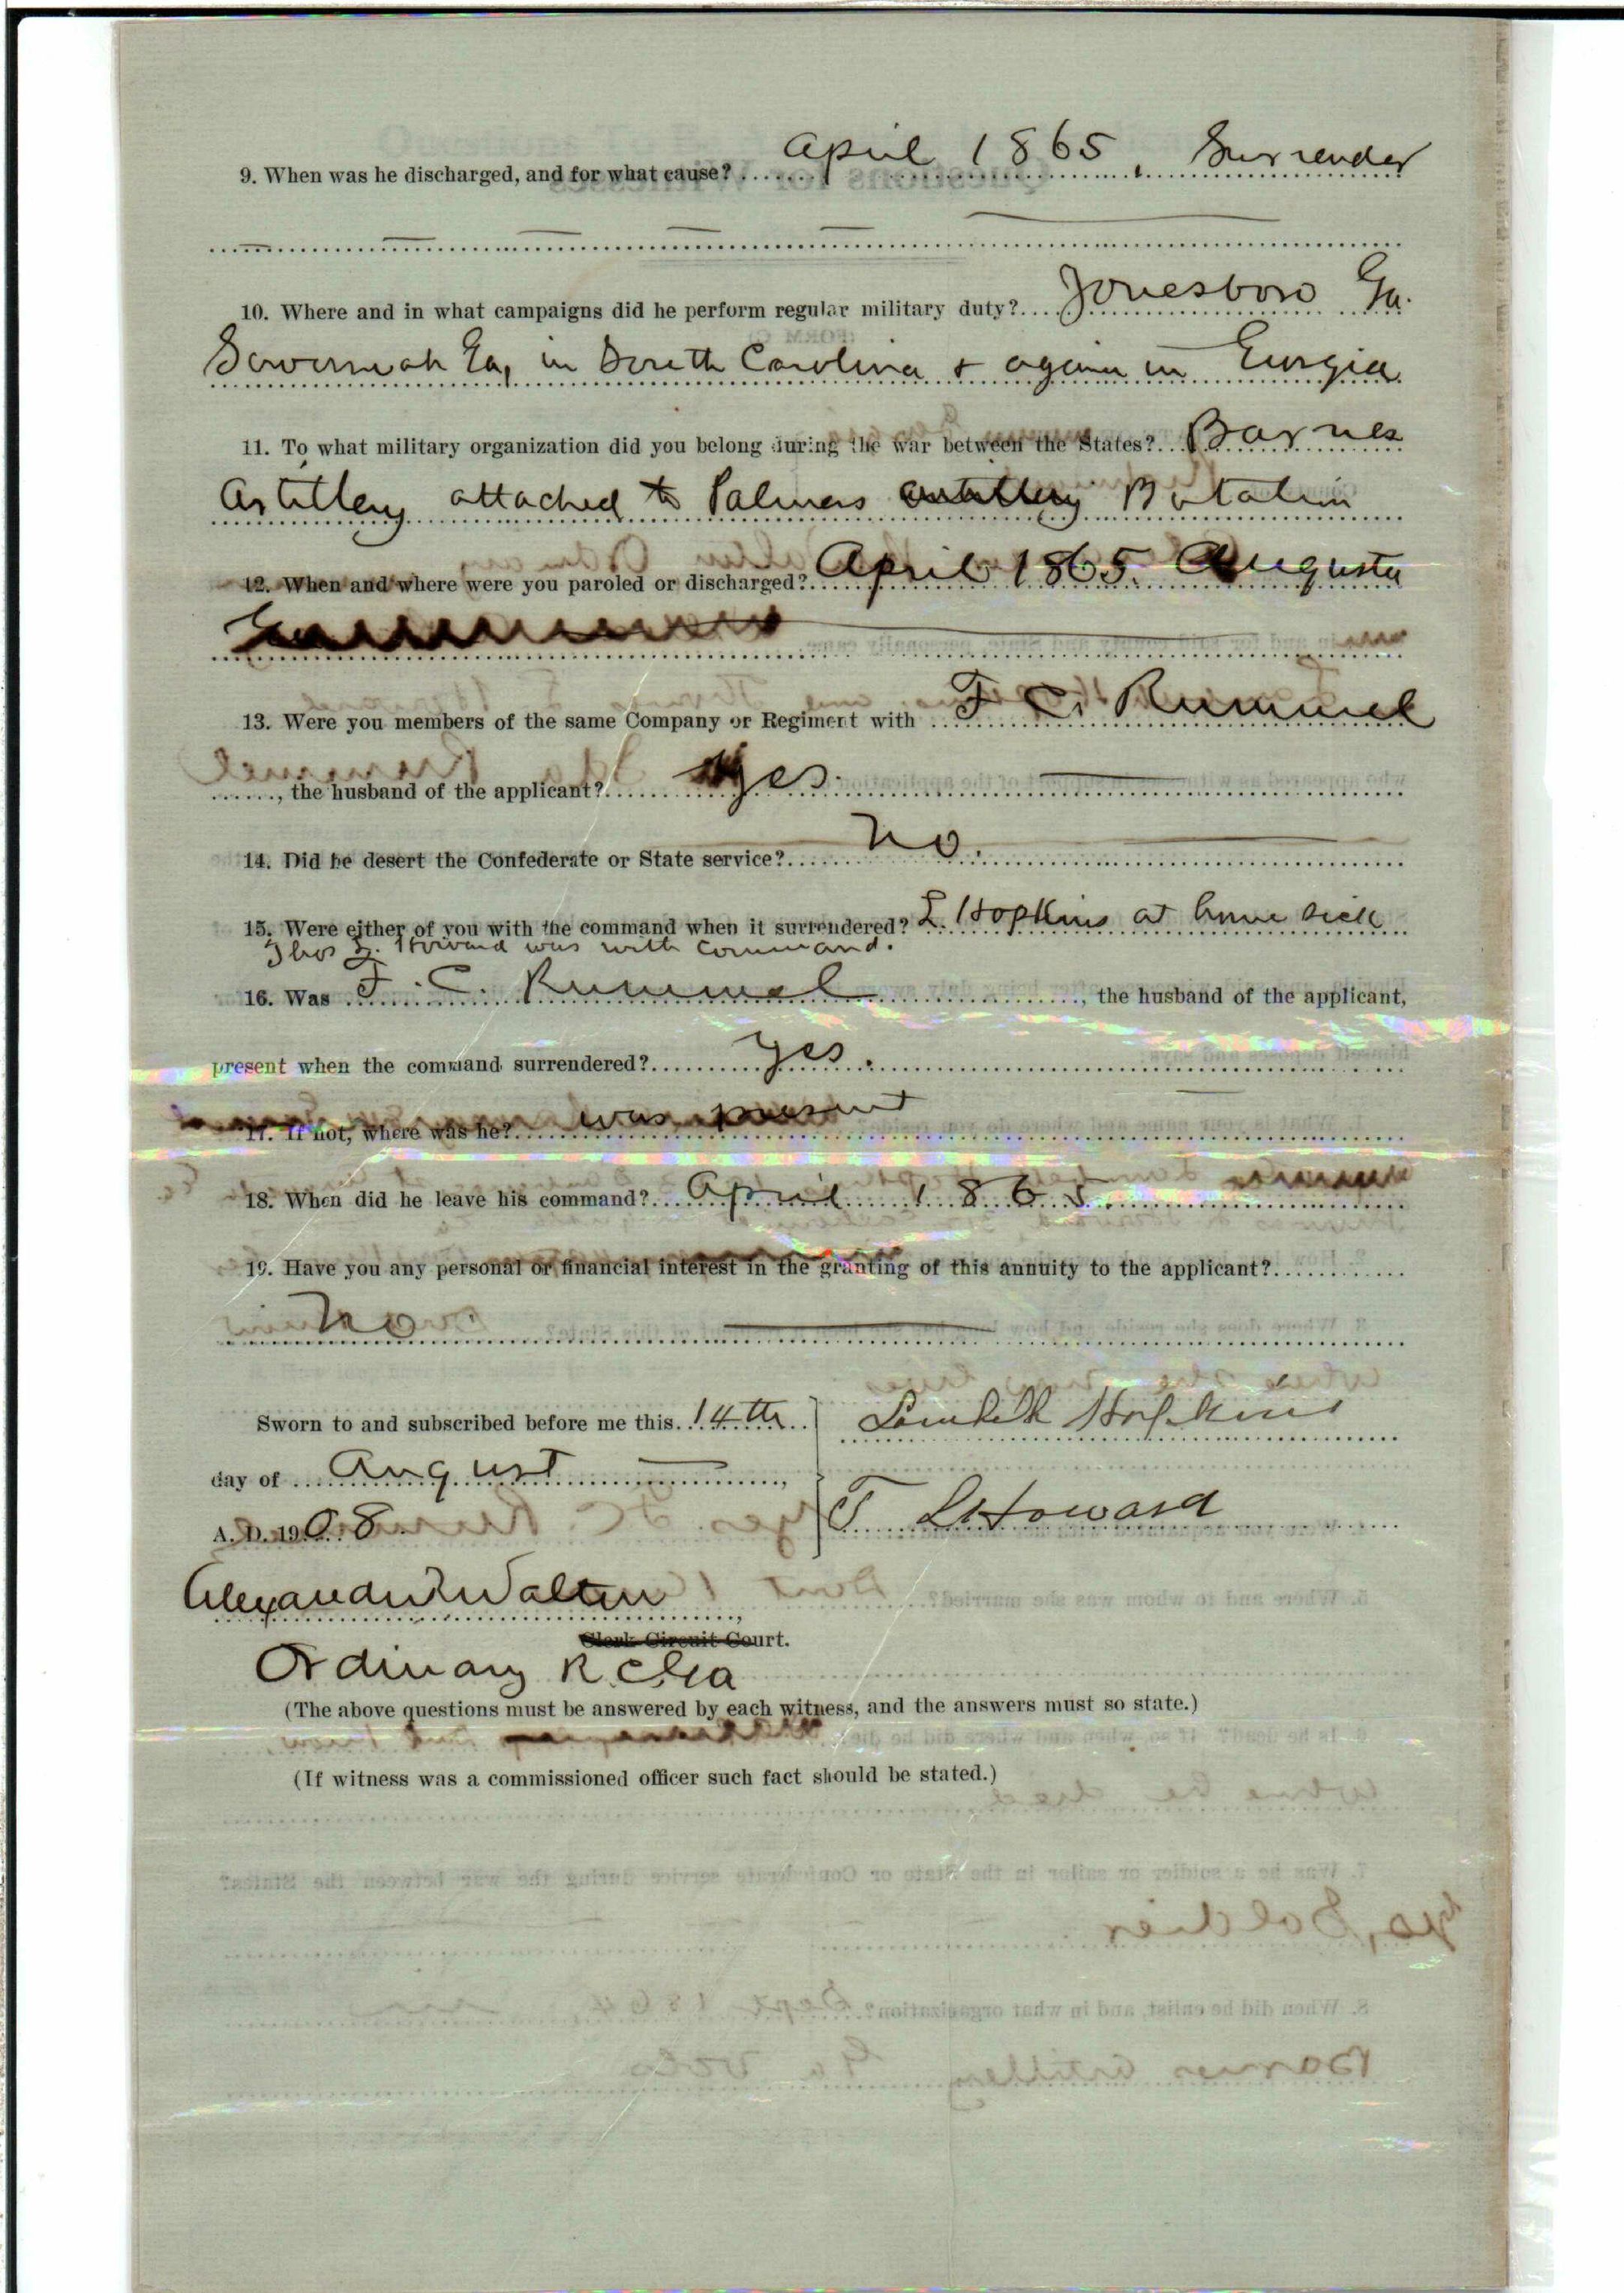 9. When was he discharged, and for what cause? April 1865, Surrender
10. Where and in what campaigns did he perform regular military duty? Jonesboro Ga.
Savannah Ga, in South Carolina + again in Georgia
11. To what military organization did you belong during the war between the States? Barnes
Artillery attached to Palmers artillery Batalin
12. When and where were you paroled or discharged? April 1865. Augusta
13. Were you members of the same Company or Regiment with F C. Rummel
, the husband of the applicant? Yes.
14. Did he desert the Confederate or State service? No.
15. Were either of you with the command when it surrendered? L. Hopkins at home sick
Thos L. Howard was with command.
16. Was F. C. Rummel, the husband of the applicant,
present when the command surrendered? Yes.
17. If not, where was he? was present
18. When did he leave his command? April 1865.
19. Have you any personal or financial interest in the granting of this annuity to the applicant?
No
Sworn to and subscribed before me this 14th Lambeth Hopkins
day of August,
A. D. 1908. T L Howard
Alexander R Walton,
Clerk Circuit Court.
Ordinary R C Ga
(The above questions must be answered by each witness, and the answers must so state.)
(If witness was a commissioned officer such fact should be stated.)